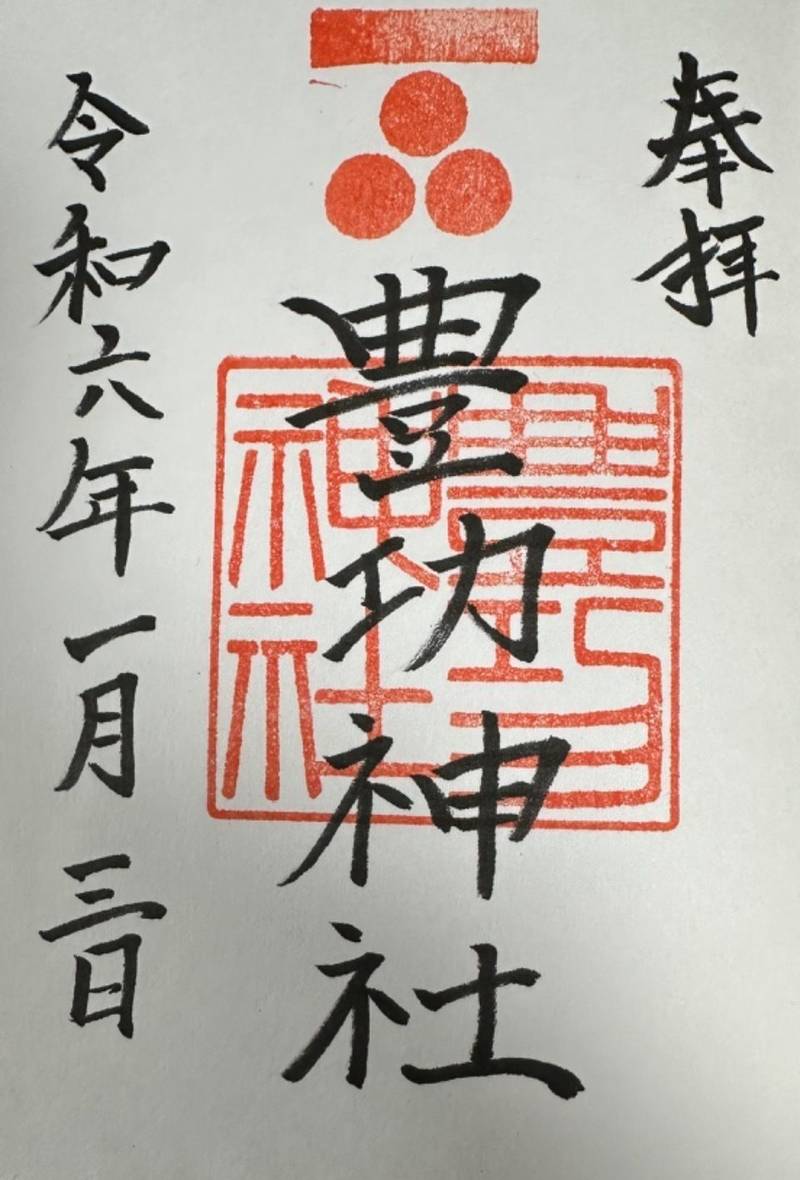 奉拝
豊功神社
豊功神社
令和六年一月三日